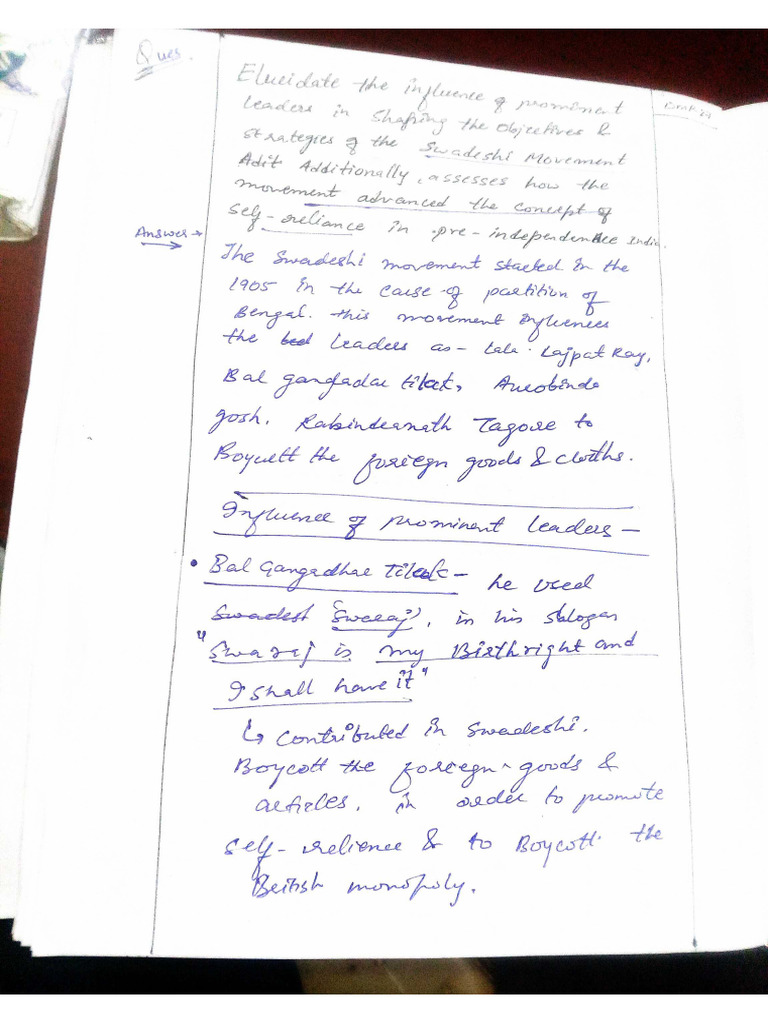 Ques.
Elucidate the influence of prominent
leaders in shaping the objectives &
strategies of the Swadeshi Movement
Adit Additionally, assesses how the
movement advanced the concept of
self-reliance in pre-independence India.
Answer →
The Swadeshi movement started in the
1905 in the cause of partition of
Bengal. this movement influences
the leaders as - Lala Lajpat Ray,
Bal gangadar tilak, Aurobindo
gosh, Rabindernath Tagore to
Boycett the foreign goods & cloths.
Influence of prominent leaders -
• Bal Gangadhar Tilak - he used
Swadesh Swaraj, in his slogan
"Swaraj is my Birthright and
I shall have it"
↳ contributed in Swadeshi.
Boycott the foreign goods &
articles, in order to promote
self-relience & to Boycott the
British monopoly.